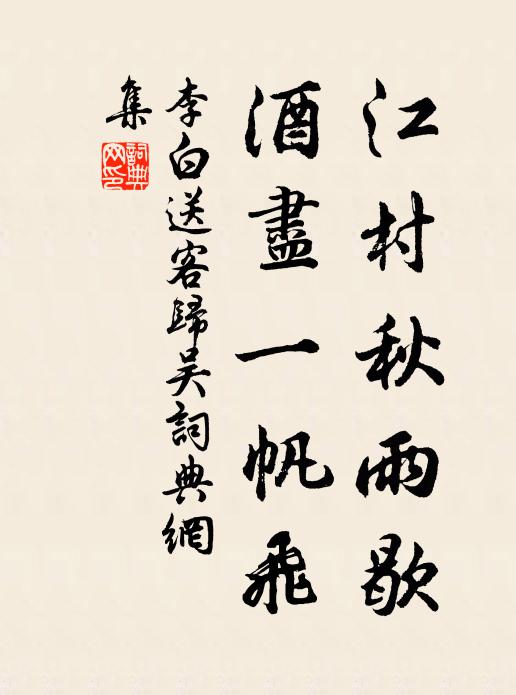 江村秋雨歇
酒盡一帆飛
李白送客歸吳詞典網
集
詞典
网印